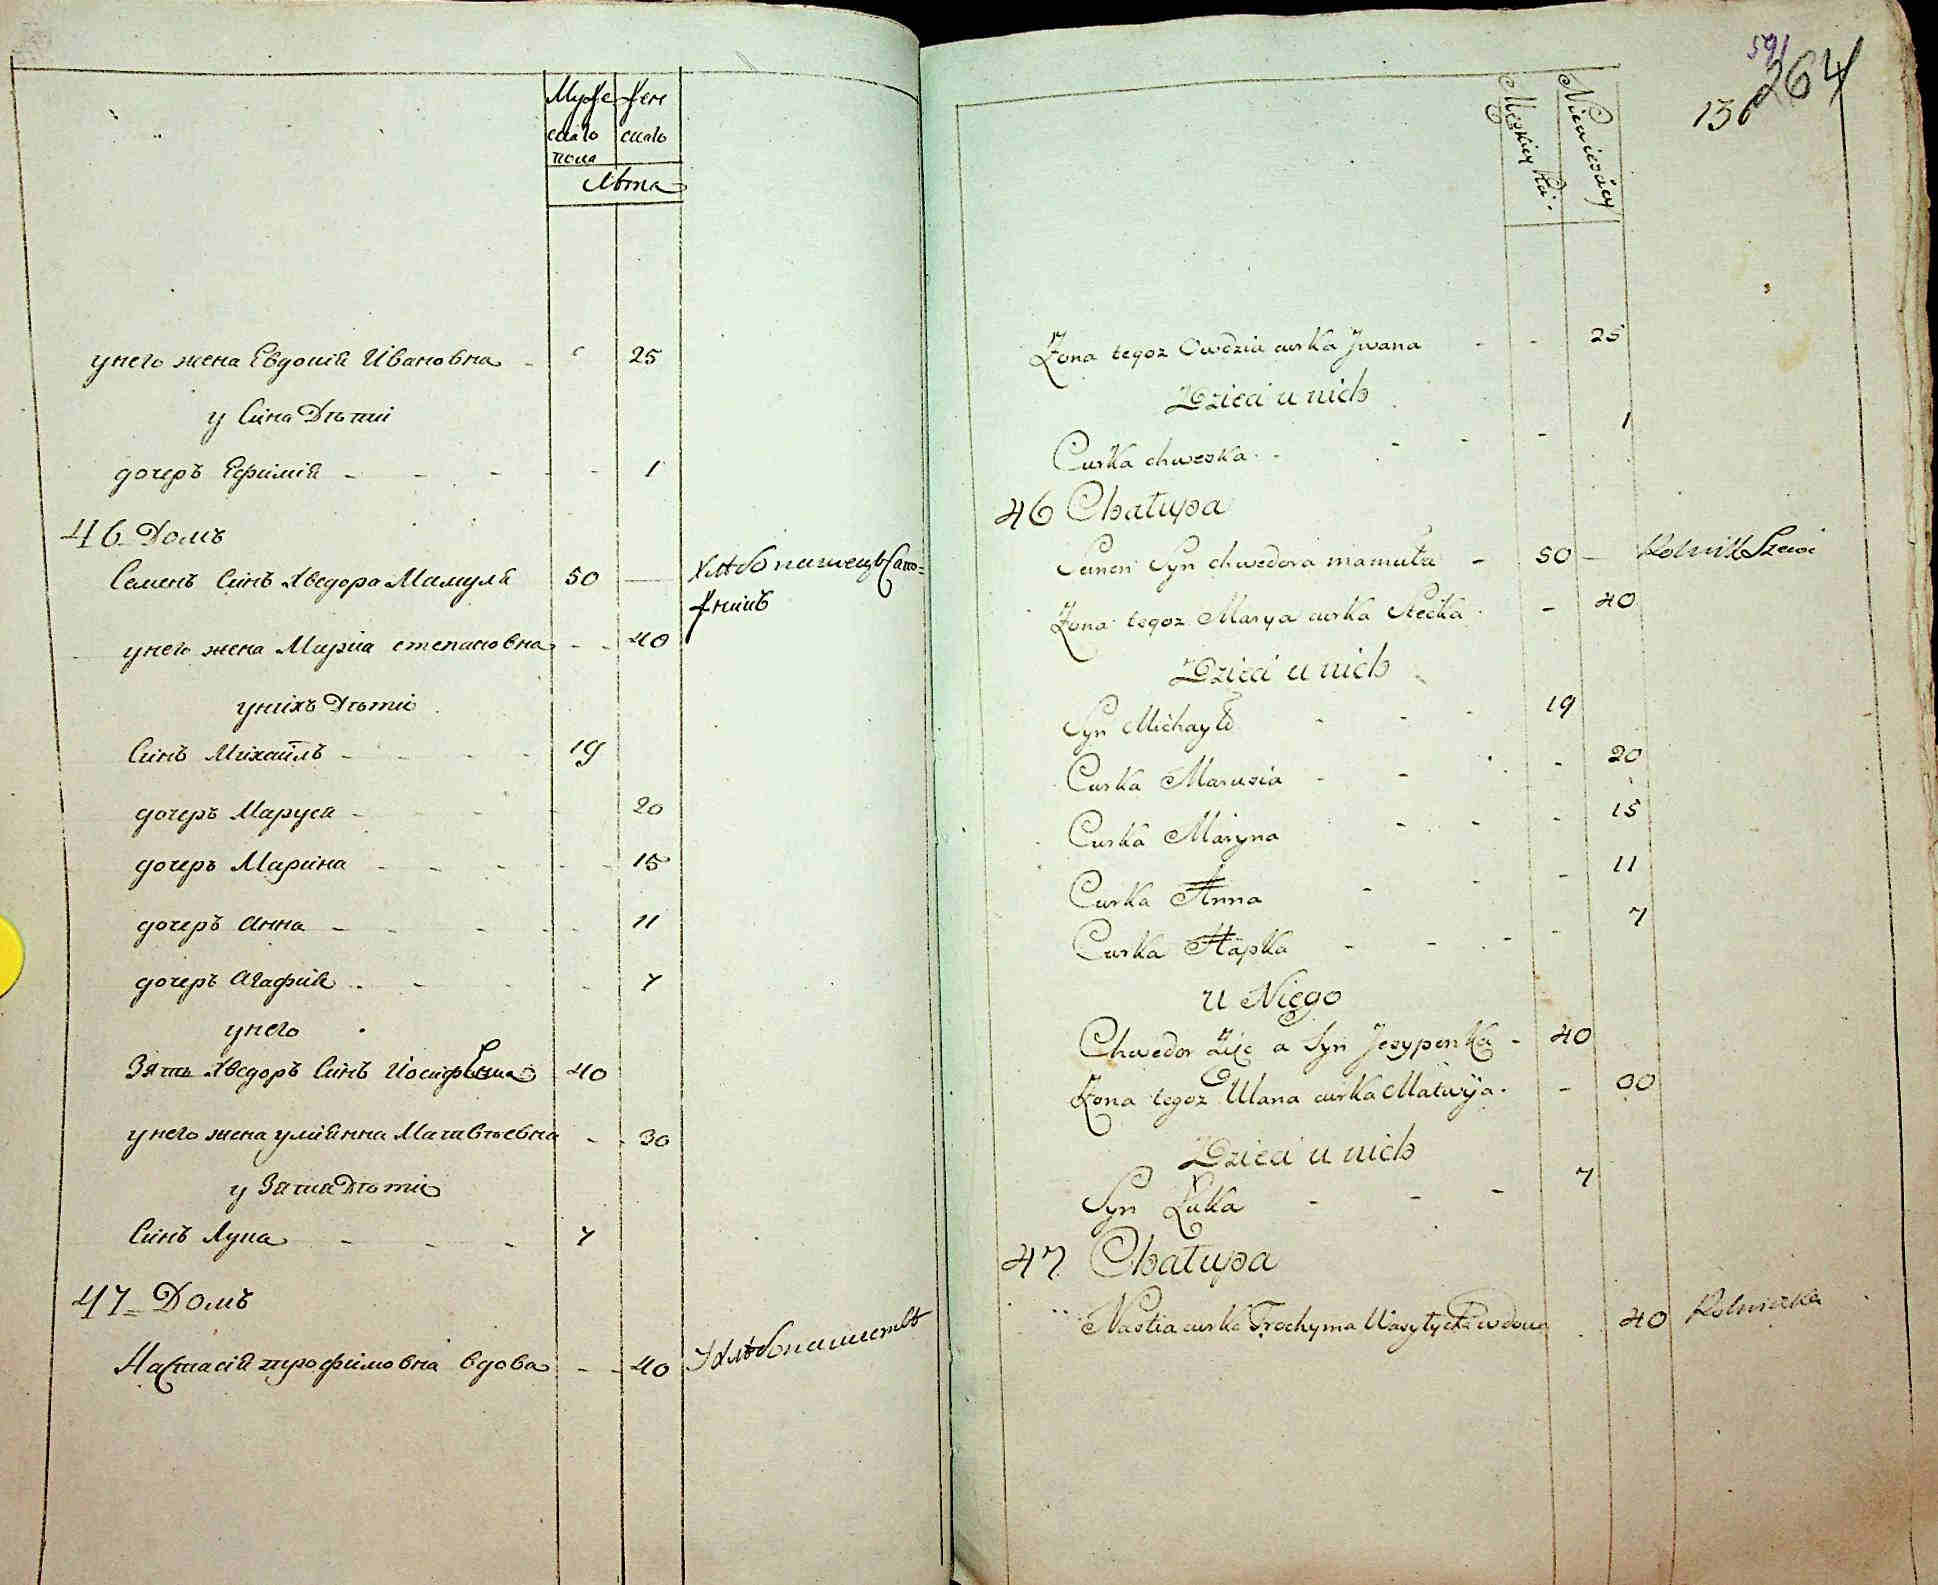 Мужескаго пола
Женскаго
Лѣта
унего жена Евдокія Ивановна - 25
у Сина Дѣтии
дочеръ Ефимія - 1
46 Домъ
Семенъ Синъ Хведора Мамуля 50 — Хлѣбопашецъ Сапожникъ
унего жена Марія степановна - 40
унихъ Дѣти
Синъ Михайлъ - 19
дочеръ Маруся - 20
дочеръ Марина - 15
дочеръ Анна - 11
дочеръ Агафія - 7
унего
Зять Хведоръ Синъ Иосифенка 40
унего жена улиянна Матвѣевна - 30
у Зятя Дѣти
Синъ Лука - 7
47 Домъ
Настасія трофимовна вдова - 40
264
136
Męzkiey
Niewieściey
Żona tegoz Owdzia curka Jwana - 25
Dzieci u nich
Curka chweska - 1
46 Chałupa
Semen Syn chwedora mamuła - 50 - Rolnik Szewc
Żona tegoz Marya curka Stecka - 40
Dzieci u nich
Syn Michayło - 19
Curka Marusia - 20
Curka Maryna - 15
Curka Anna - 11
Curka Hapka - 7
u Niego
Chwedor Zięc a Syn Jesypenka - 40
Żona tegoz Ulana curka Matwija - 30
Dzieci u nich
Syn Łuka - 7
47 Chałupa
Nastia curka Trochyma Wasylycha wdowa 40 Rolniczka